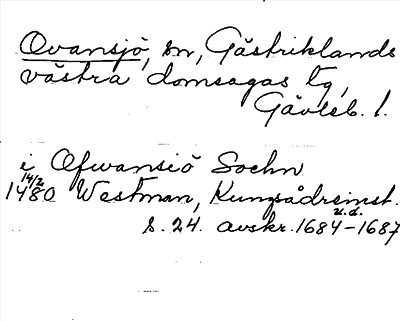 Ovansjö, sn, Gästriklands
västra domsagas tg,
Gävleb. l.
i Ofwansiö Sochn
14/2
1480 Westman, Kungsådreinst.
u.d.
s. 24. avskr. 1684-1687